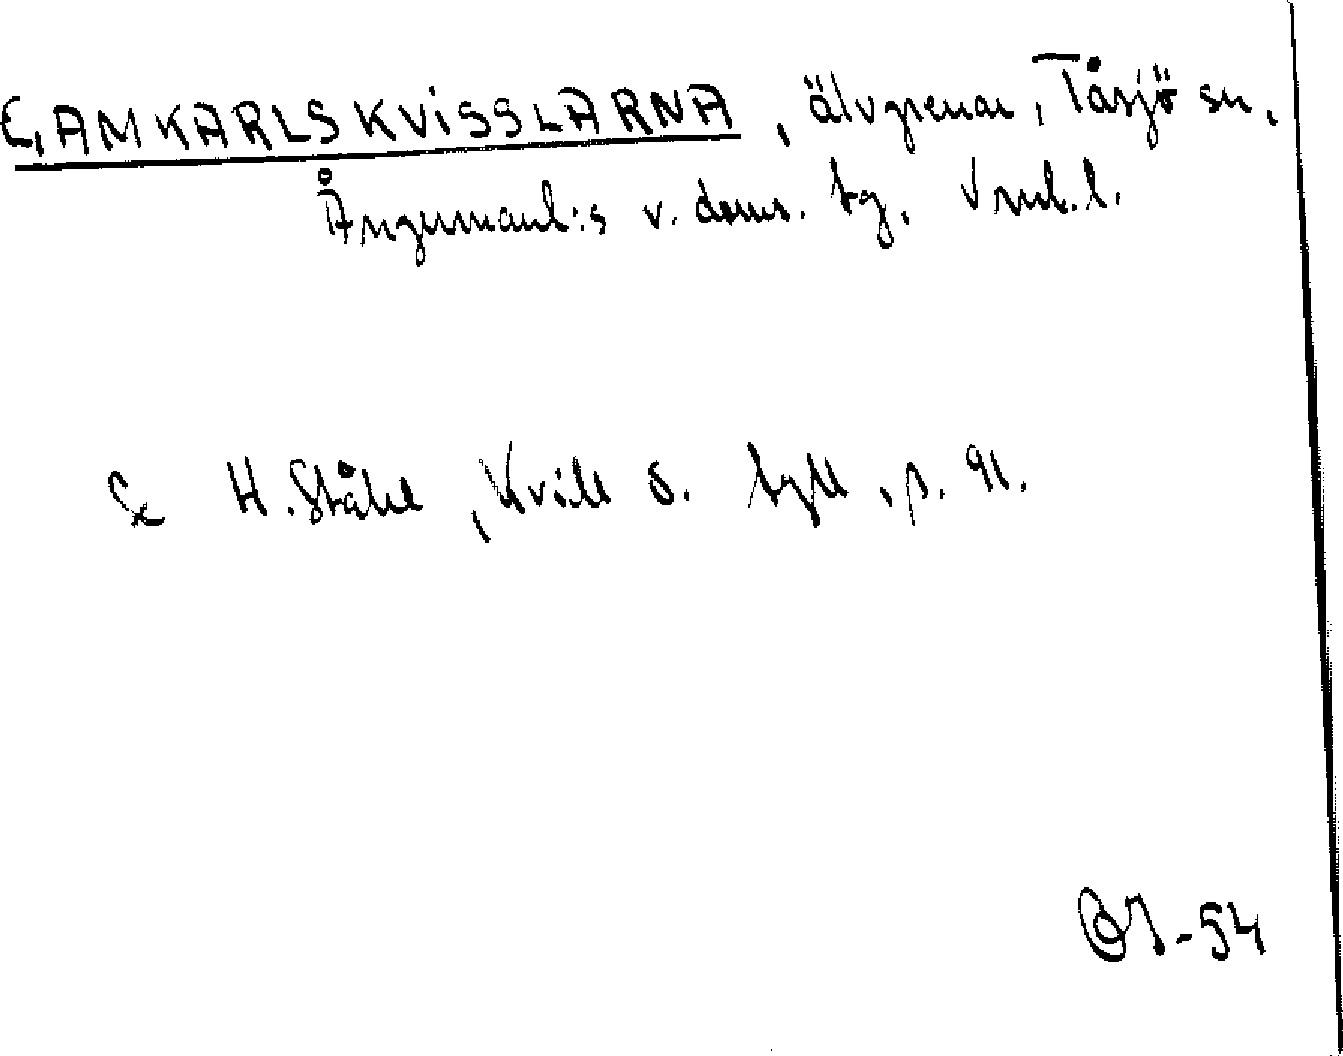 GAMKARLSKVISSLARNA, älvgrenar, Tåsjö sn,
Ångermanl:s v. doms. tg. Vnrl. l.
Se H. Ståhl, Kvill o. tyll, p. 91.
-54